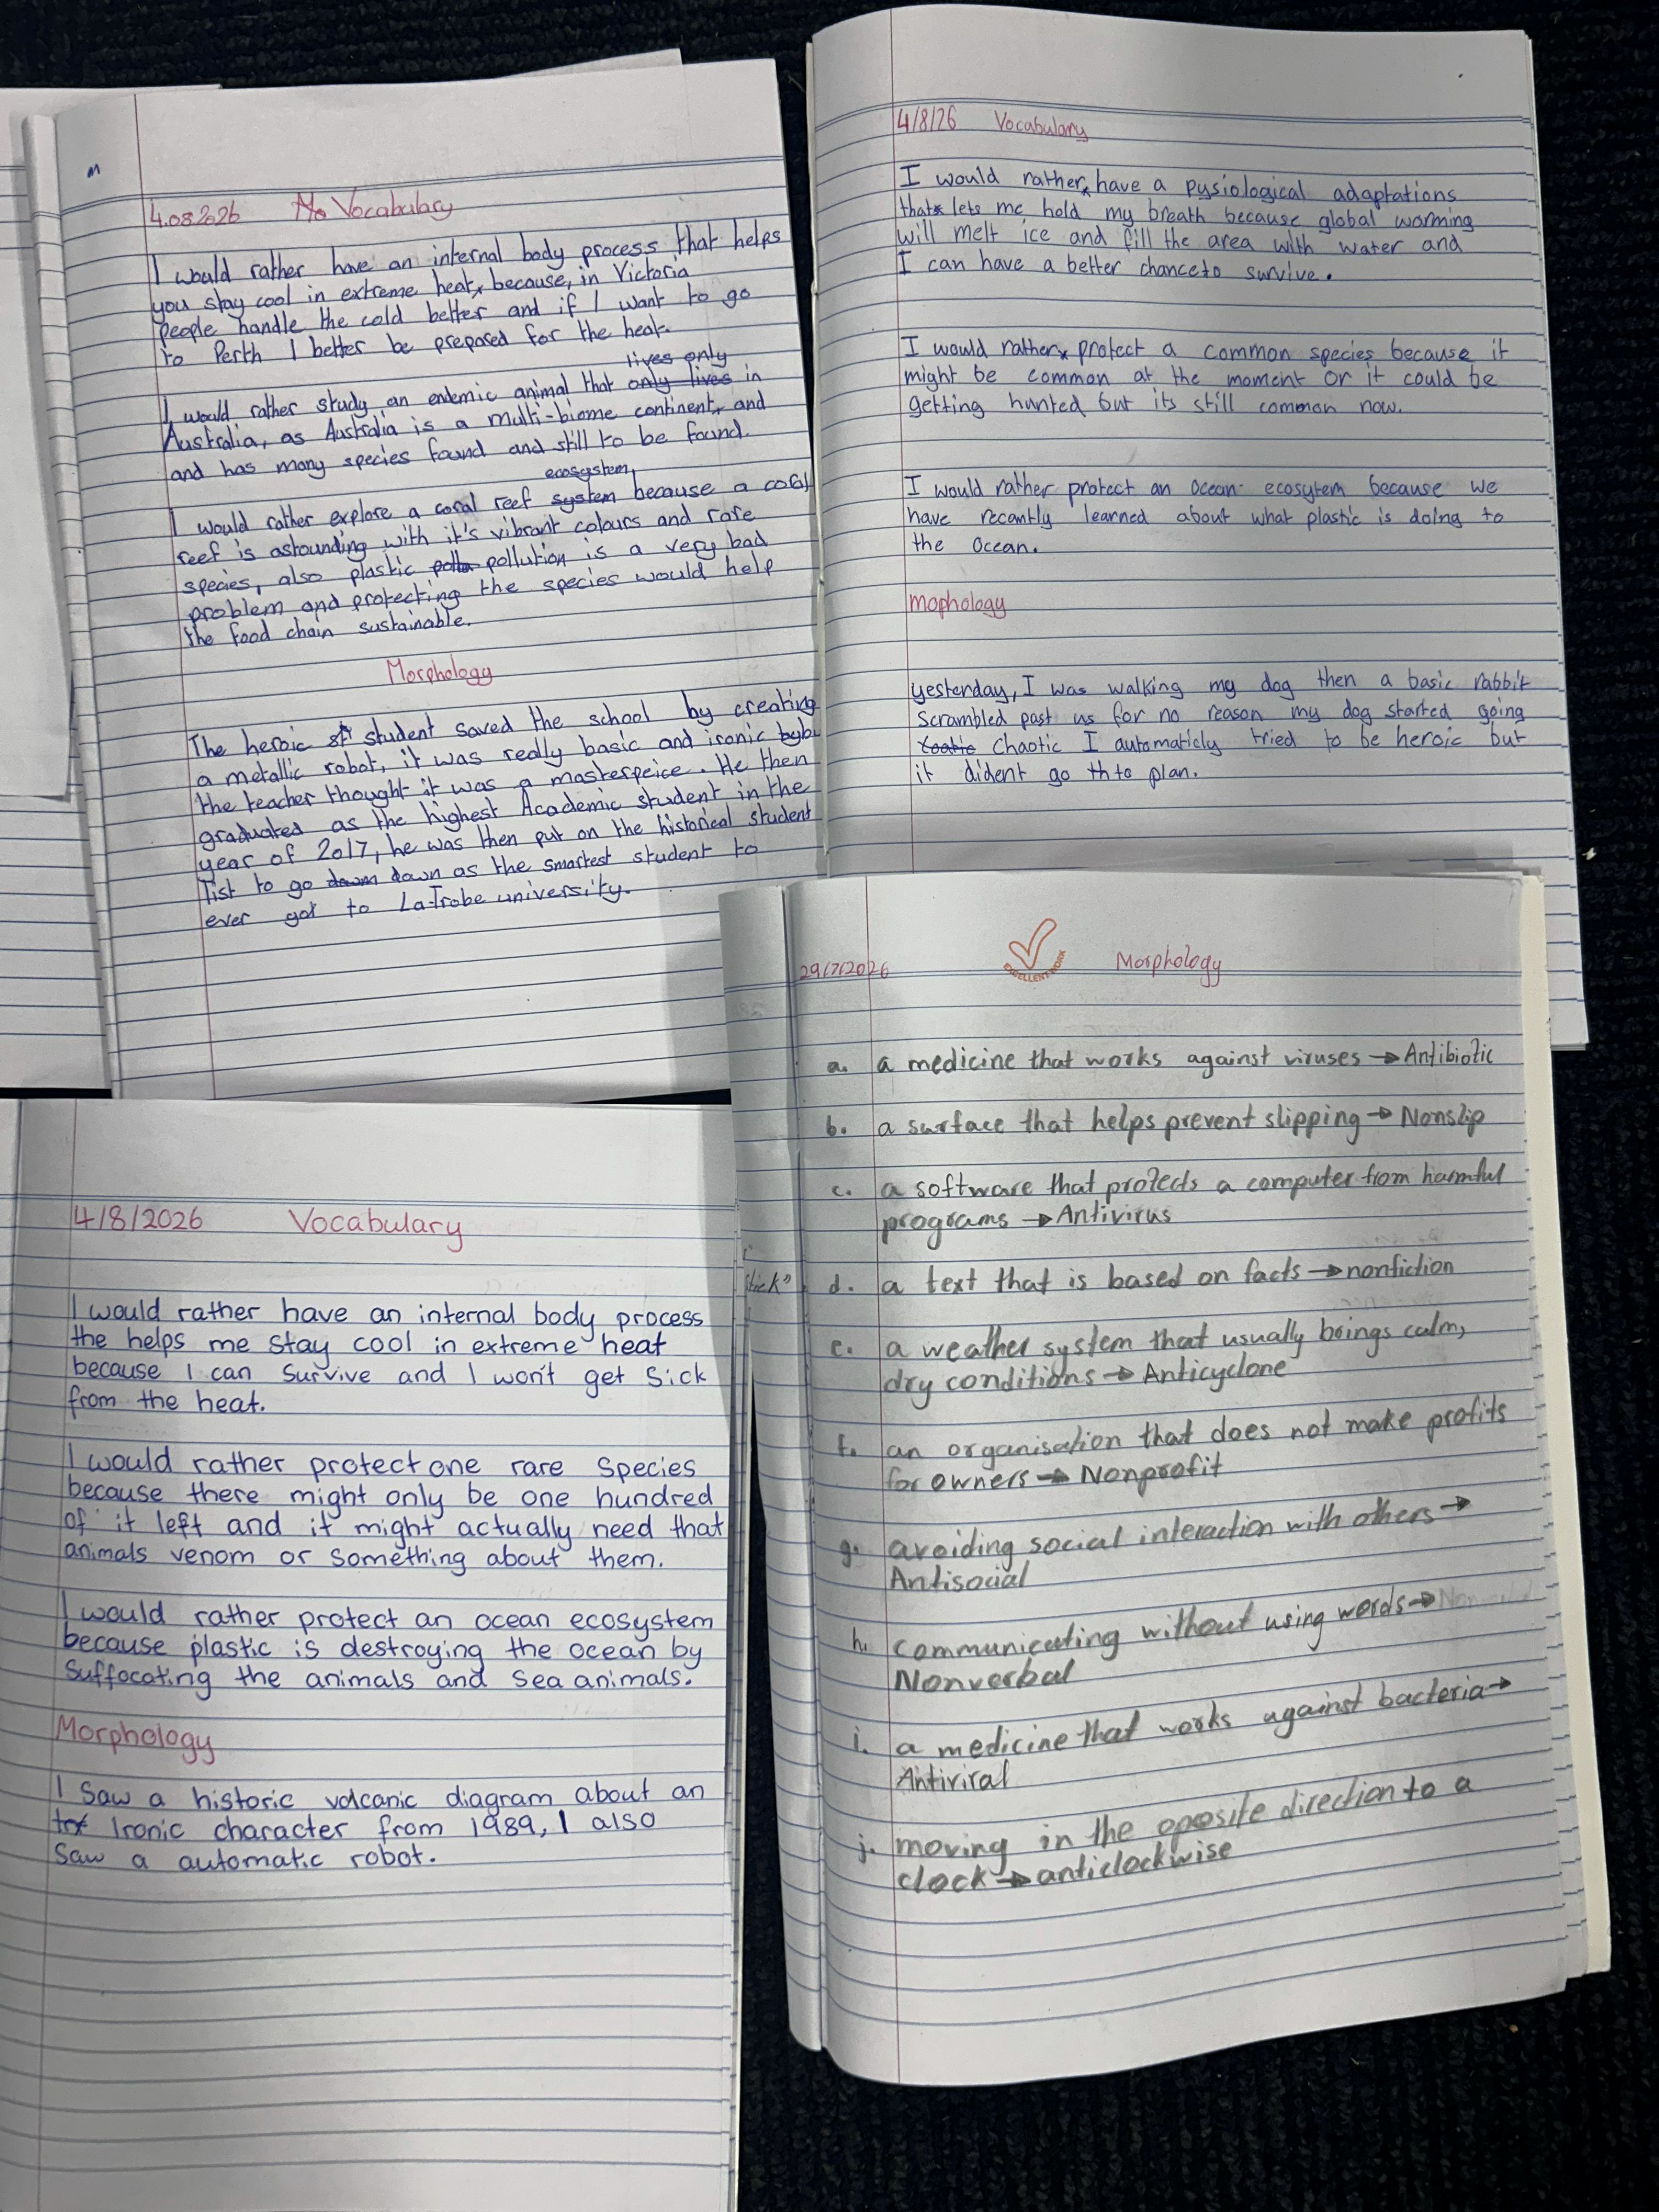 4.08.2026 Mo Vocabulary
I would rather have an internal body process that helps
you stay cool in extreme heat, because, in Victoria
people handle the cold better and if I want to go
to Perth I better be prepared for the heat.
lives only
I would rather study an endemic animal that only lives in
Australia, as Australia is a multi-biome continent, and
and has many species found and still to be found.
ecosystem,
I would rather explore a coral reef system because a coral
reef is astounding with it's vibrant colours and rare
species, also plastic pollution is a very bad
problem and protecting the species would help
the food chain sustainable.
Morphology
The heroic st student saved the school by creating
a metallic robot, it was really basic and ironic
the teacher thought it was a masterpeice. He then
graduated as the highest Academic student in the
year of 2017, he was then put on the historical student
list to go down down as the smartest student to
ever got to La-Trobe university.
4/8/26 Vocabulary
I would rather have a pysiological adaptations
that lets me hold my breath because global warming
will melt ice and fill the area with water and
I can have a better chance to survive.
I would rather protect a common species because it
might be common at the moment or it could be
getting hunted but its still common now.
I would rather protect an ocean ecosytem because we
have recantly learned about what plastic is doing to
the ocean.
mophology
yesterday, I was walking my dog then a basic rabbit
scrambled past us for no reason my dog started going
chaotic I automaticly tried to be heroic but
it dident go th to plan.
4/8/2026 Vocabulary
I would rather have an internal body process
the helps me stay cool in extreme heat
because I can survive and I won't get sick
from the heat.
I would rather protect one rare species
because there might only be one hundred
of it left and it might actually need that
animals venom or something about them.
I would rather protect an ocean ecosystem
because plastic is destroying the ocean by
suffocating the animals and sea animals.
Morphology
I saw a historic volcanic diagram about an
Ironic character from 1989, I also
saw a automatic robot.
29/7/2026 EXCELLENT WORK Morphology
a. a medicine that works against viruses → Antibiotic
b. a surface that helps prevent slipping → Nonslip
c. a software that protects a computer from harmful
programs → Antivirus
d. a text that is based on facts → nonfiction
e. a weather system that usually brings calm,
dry conditions → Anticyclone
f. an organisation that does not make profits
for owners → Nonprofit
g. avoiding social interaction with others →
Antisocial
h. communicating without using words →
Nonverbal
i. a medicine that works against bacteria →
Antiviral
j. moving in the oposite direction to a
clock → anticlockwise